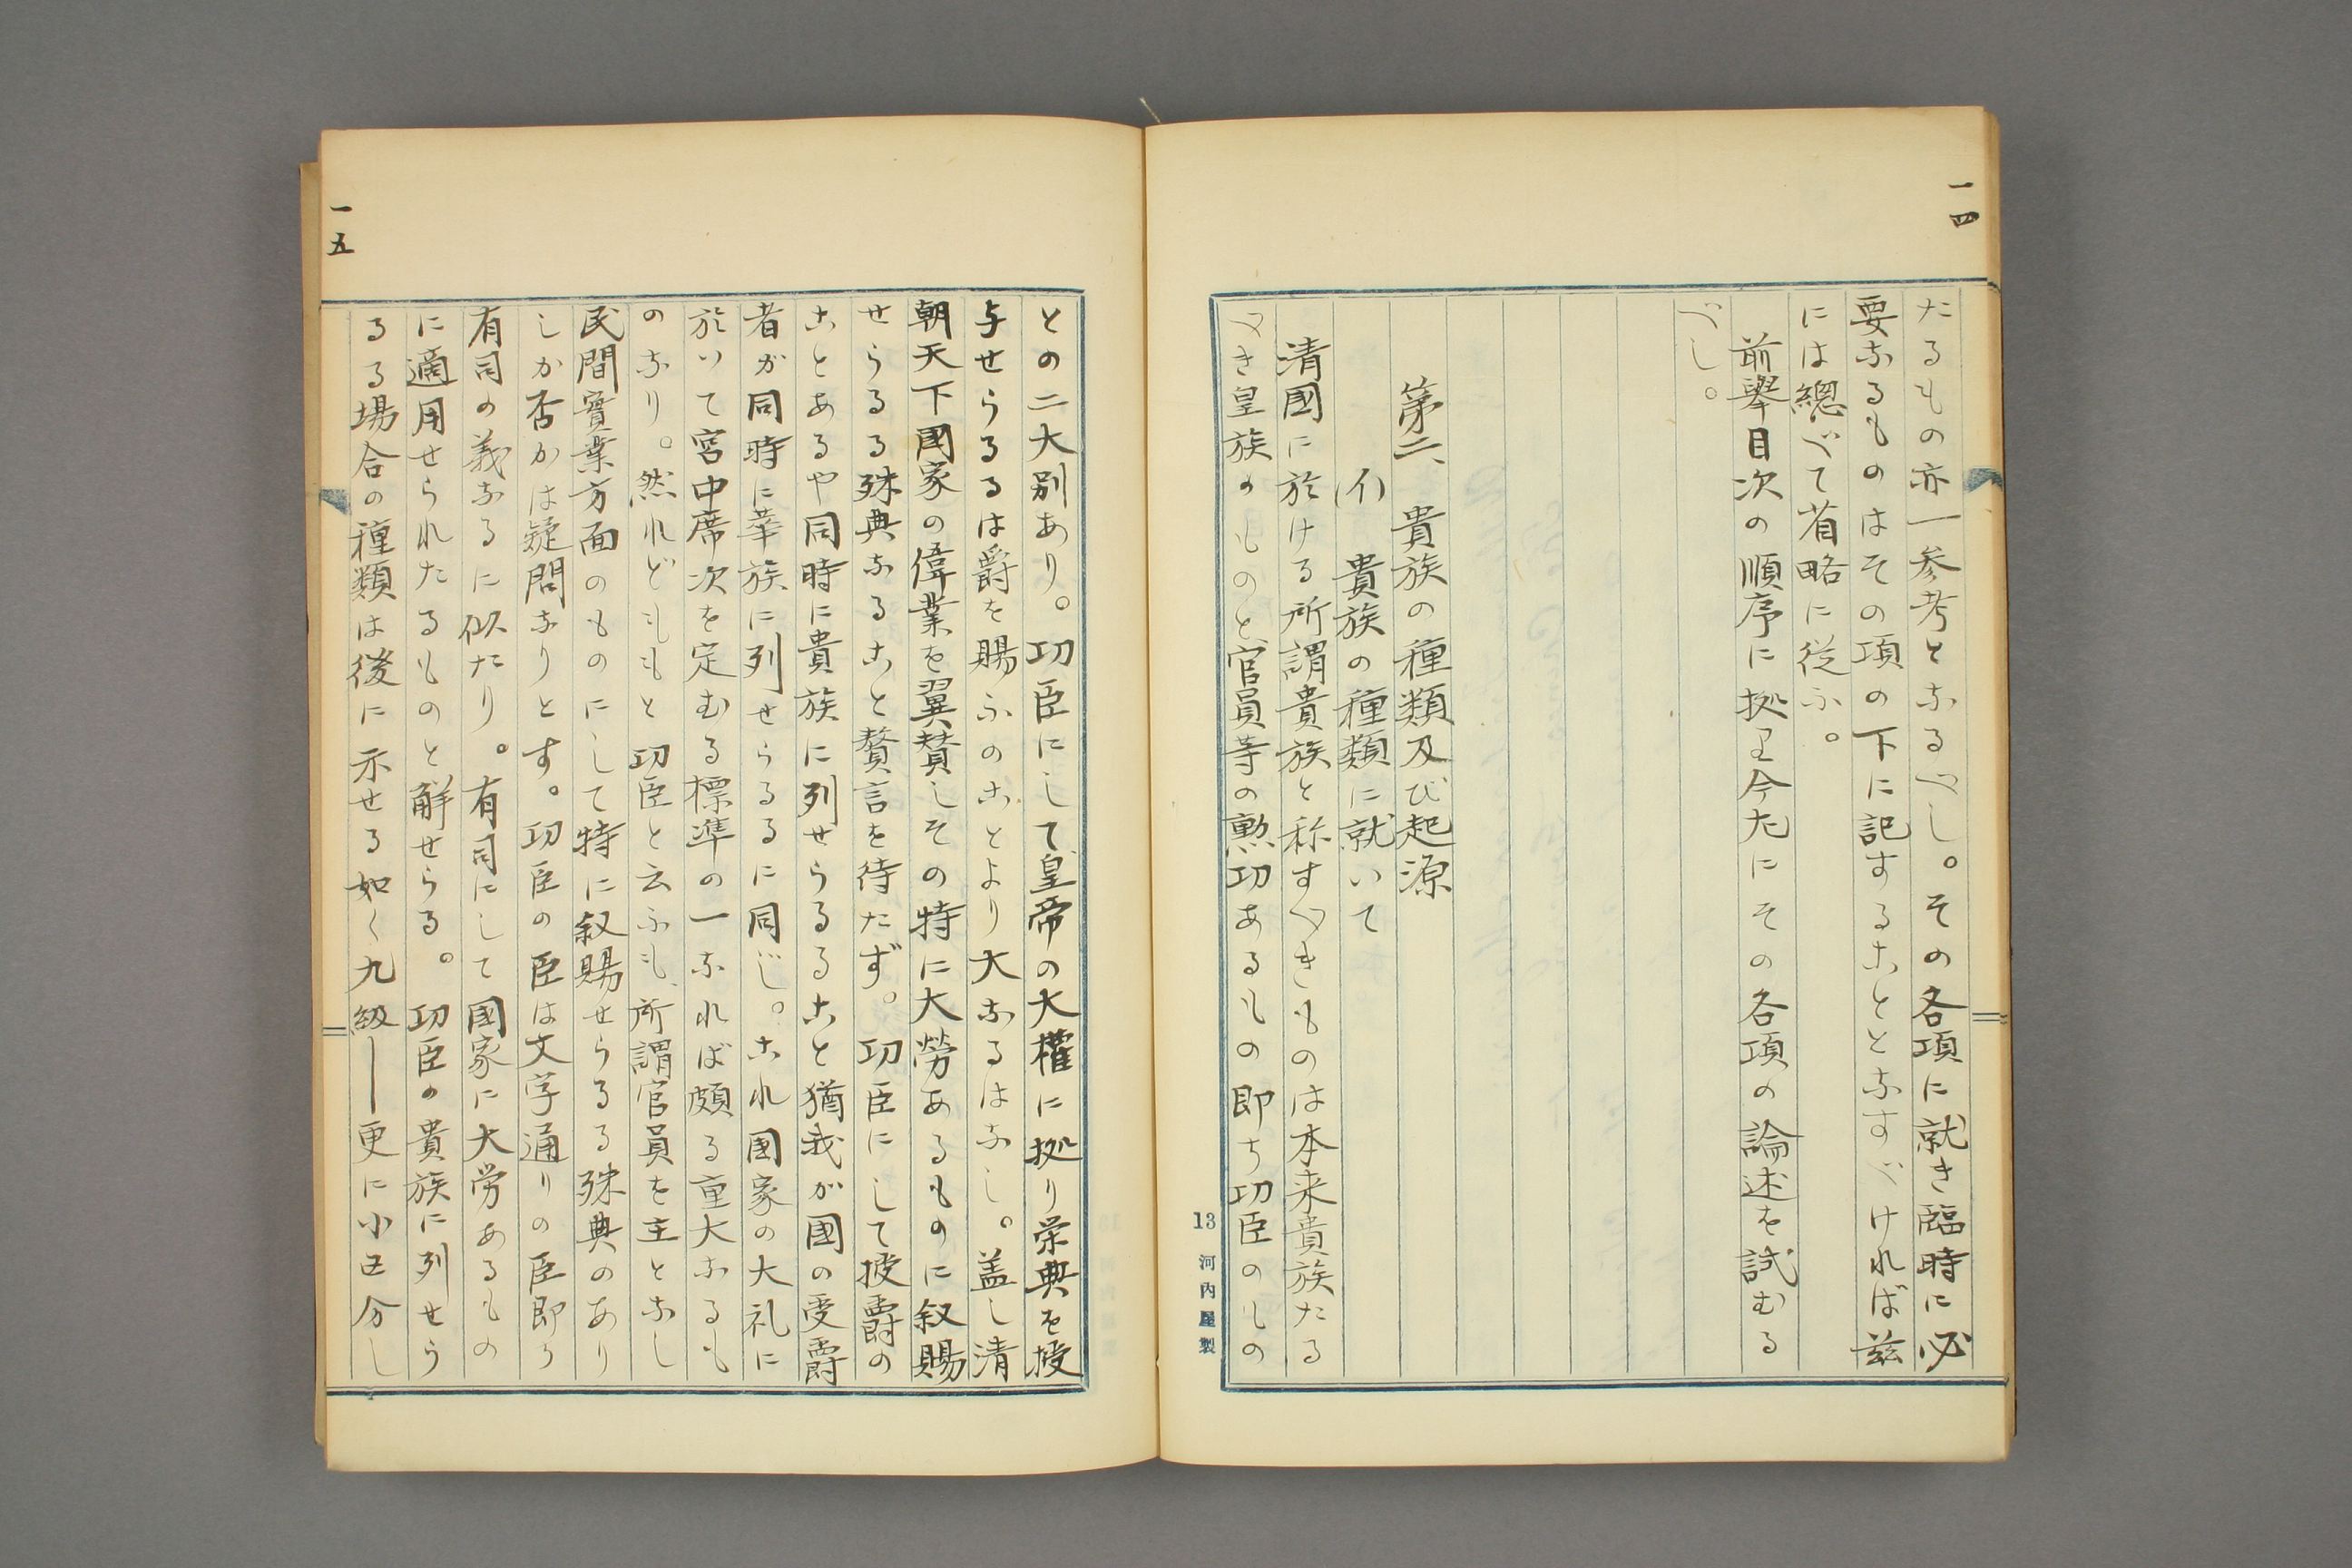 一四
たるもの亦一参考となるべし。その各項に就き臨時に必
要なるものはその項の下に記することとなすべければ茲
には總べて省略に従ふ。
前擧目次の順序に拠り今左にその各項の論述を試むる
べし。
第二、貴族の種類及び起源
(イ) 貴族の種類に就いて
清國に於ける所謂貴族と称すべきものは本来貴族たる
べき皇族のものと官員等の勲功あるもの即ち功臣のもの
13 河内屋製
一五
との二大別あり。功臣にして皇帝の大權に拠り栄典を授
与せらるるは爵を賜ふのことより大なるはなし。盖し清
朝天下國家の偉業を翼賛しその特に大勞あるものに叙賜
せらるる殊典なること贅言を待たず。功臣にして授爵の
ことあるや同時に貴族に列せらるること猶我が國の受爵
者が同時に華族に列せらるるに同じ。これ國家の大礼に
於いて宮中席次を定むる標準の一なれば頗る重大なるも
のなり。然れどももと功臣と云ふも、所謂官員を主となし
民間實業方面のものにして特に叙賜せらるる殊典のあり
しか否かは疑問なりとす。功臣の臣は文字通りの臣即ち
有司の義なるに似たり。有司にして國家に大労あるもの
に適用せられたるものと解せらる。功臣の貴族に列せら
るる場合の種類は後に示せる如く九級―更に小区分し